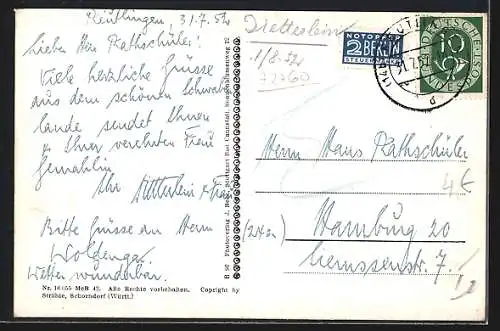 Reutlingen, 31.7.52
Lieber Herr Rathschüler!
Viele herzliche Grüsse
aus dem schönen Schwaben
lande sendet Ihnen
u Ihrer verehrten Frau
Gemahlin
Ihr Frau
Bitte Grüsse an Herrn
Woldenga.
Wetter wunderbar.
Nr. MeB 42. Alle Rechte vorbehalten. Copyright by
Strähle, Schorndorf (Württ.)
1/8. 52
72760
NOTOPFER
2 BERLIN
STEUERMARKE
DEUTSCHE
10
BUNDESPOST
Herrn Hans Rathschüler
4€
(24a)
Hamburg 20
7.